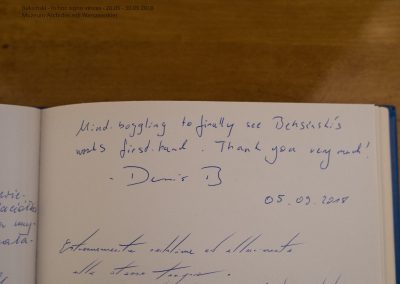 Beksiński - In hoc signo vinces - 20.05 - 30.09.2018
Muzeum Archidiecezji Warszawskiej
Mind-boggling to finally see Beksinski's
works first-hand. Thank you very much!
- Denis B
05.09.2018
Estremamente sublime ed allucinante
allo stesso tempo.